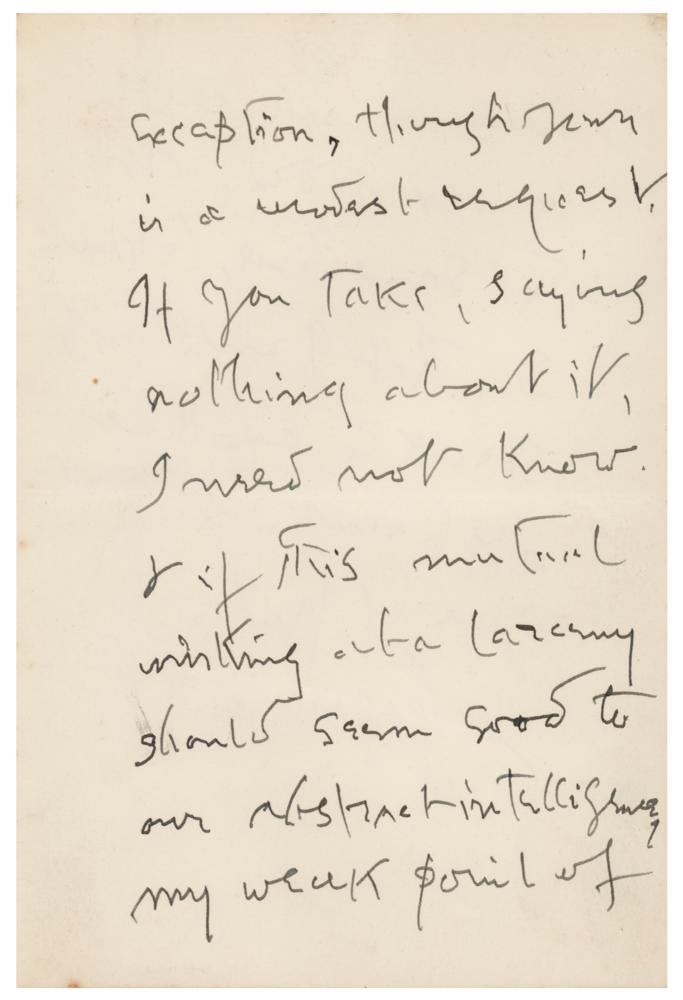 exception, though yours
is a modest request.
If you take, saying
nothing about it,
I need not know.
& if this mutual
winking at a larceny
should seem good to
our abstract intelligence,
my weak point of